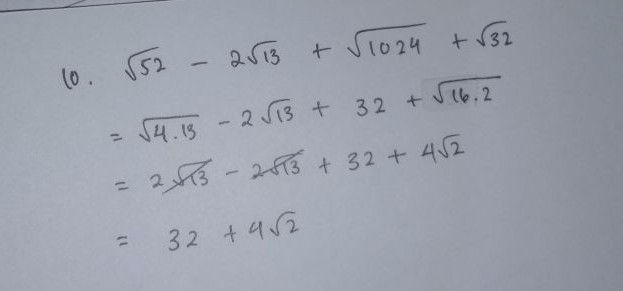 10. √52 - 2√13 + √1024 + √32
= √4.13 - 2√13 + 32 + √16.2
= 2√13 - 2√13 + 32 + 4√2
= 32 + 4√2